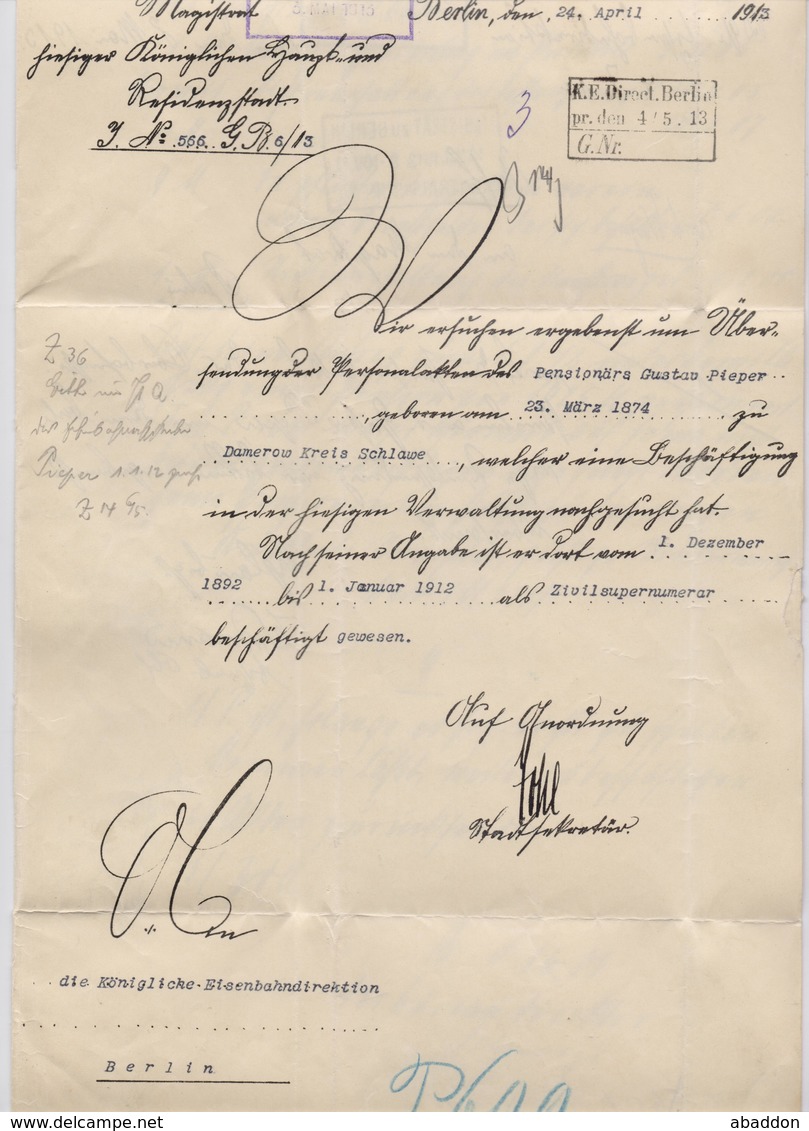 Magistrat
Berlin, den 24. April 1913
hiesiger Königlichen Haupt- und
Residenzstadt
J. No. 566 G.B. 6/13
3
K.E.Direct.Berlin
pr. den 4/5. 13
G.Nr.
Wir ersuchen ergebenst um Über-
sendung der Personalakten des Pensionärs Gustav Pieper
, geboren am 23. März 1874 zu
Damerow Kreis Schlawe, welcher eine Beschäftigung
in der hiesigen Verwaltung nachgesucht hat.
Nach seiner Angabe ist er dort vom 1. Dezember
1892 bis 1. Januar 1912 als Zivilsupernumerar
beschäftigt gewesen.
Z 36
Pieper 1.1.12
Auf Anordnung
Stadtsekretär.
An
die Königliche Eisenbahndirektion
Berlin
abaddon